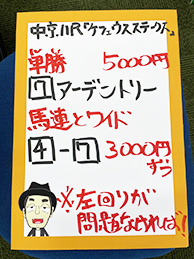 中京11R『ケフェウスステークス』
単勝 5000円
7 アーデントリー
馬連とワイド
4-7 3000円
ずつ
※左回りが
問題なければ!!